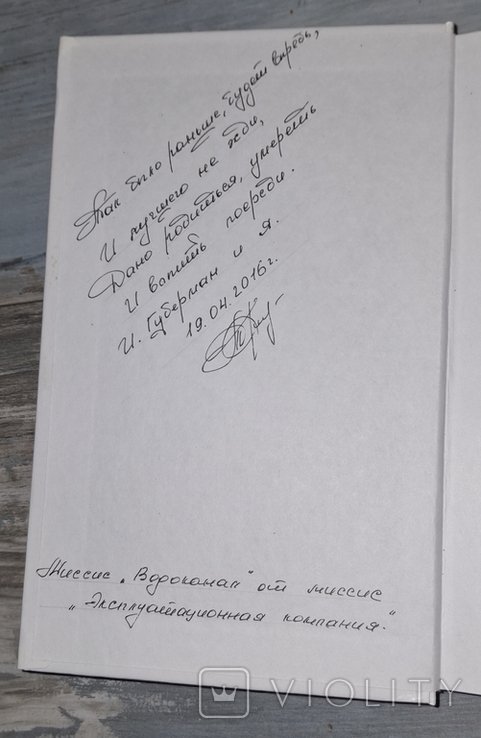 Так было раньше, будет впредь,
И лучшего не жди,
Дано родиться, умереть
И выпить посреди.
И. Губерман и я.
19.04.2016г.
Миссис „Водоканал" от миссис
„Эксплуатационная компания."
VIOLITY